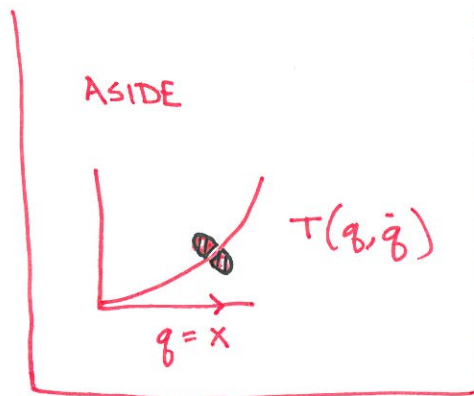 ASIDE
T(q, q̇)
q = x